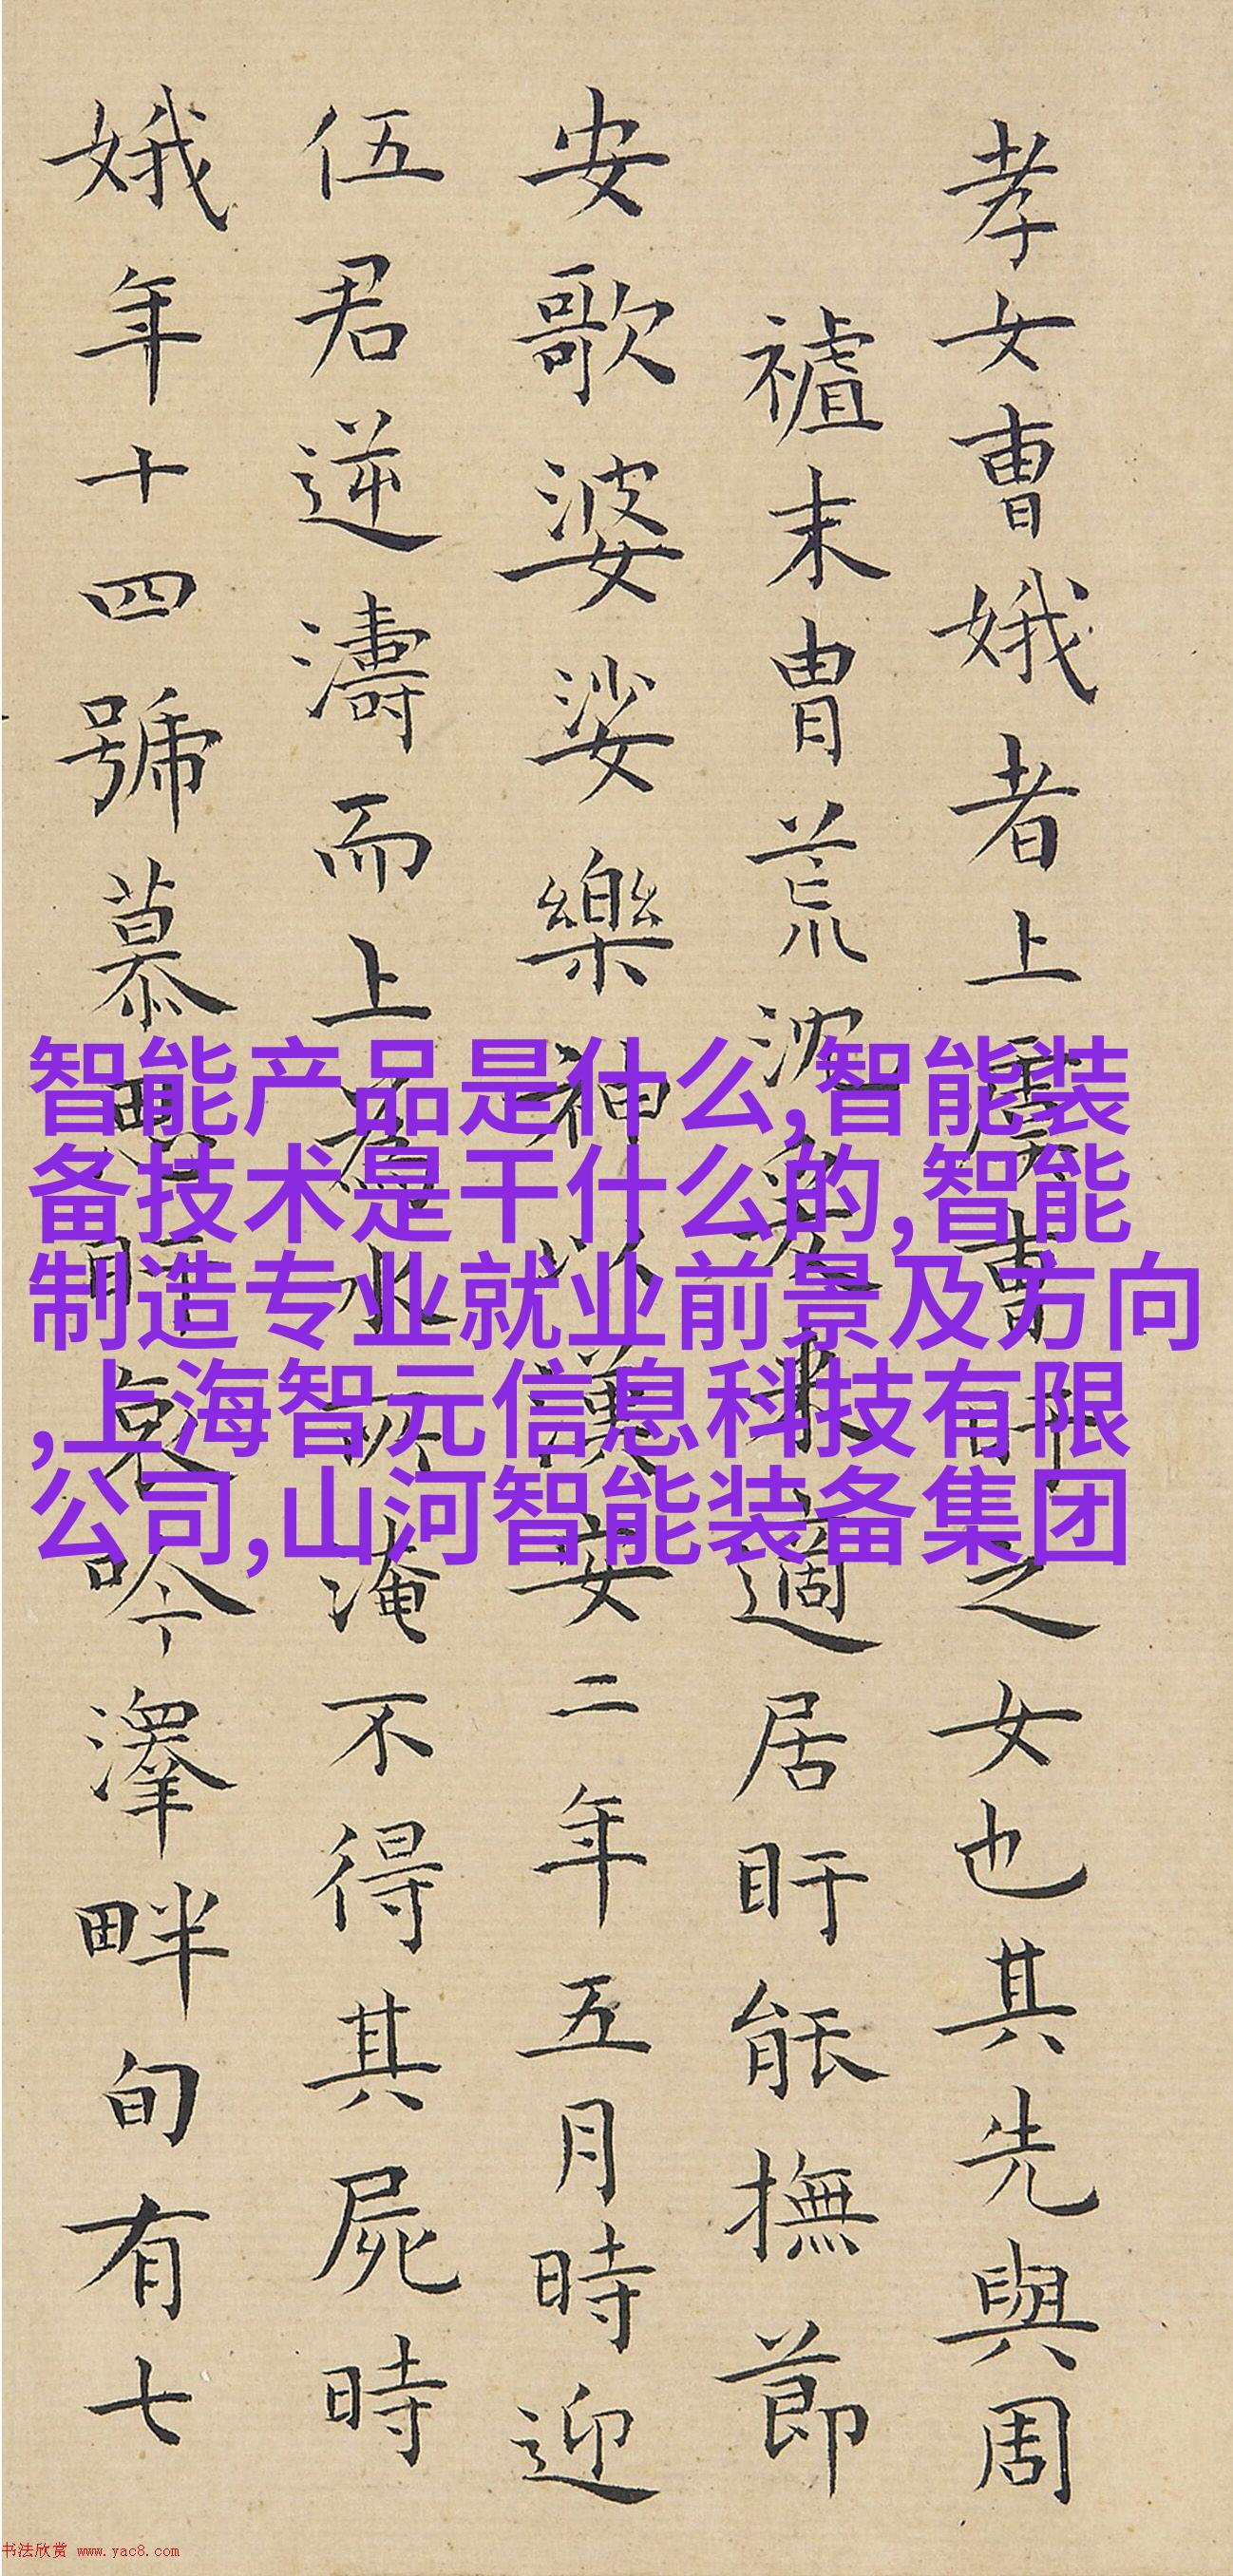 孝女曹娥者上虞曹盱之女也其先與周
末胄荒沈爰來適居盱能撫節
安歌婆娑樂神以漢安二年五月時迎
伍君逆濤而上為水所淹不得其屍時
娥年十四號慕思盱哀吟澤畔旬有七
智能产品是什么,智能装
备技术是干什么的,智能
制造专业就业前景及方向
,上海智元信息科技有限
公司,山河智能装备集团
书法欣赏 www.yac8.com